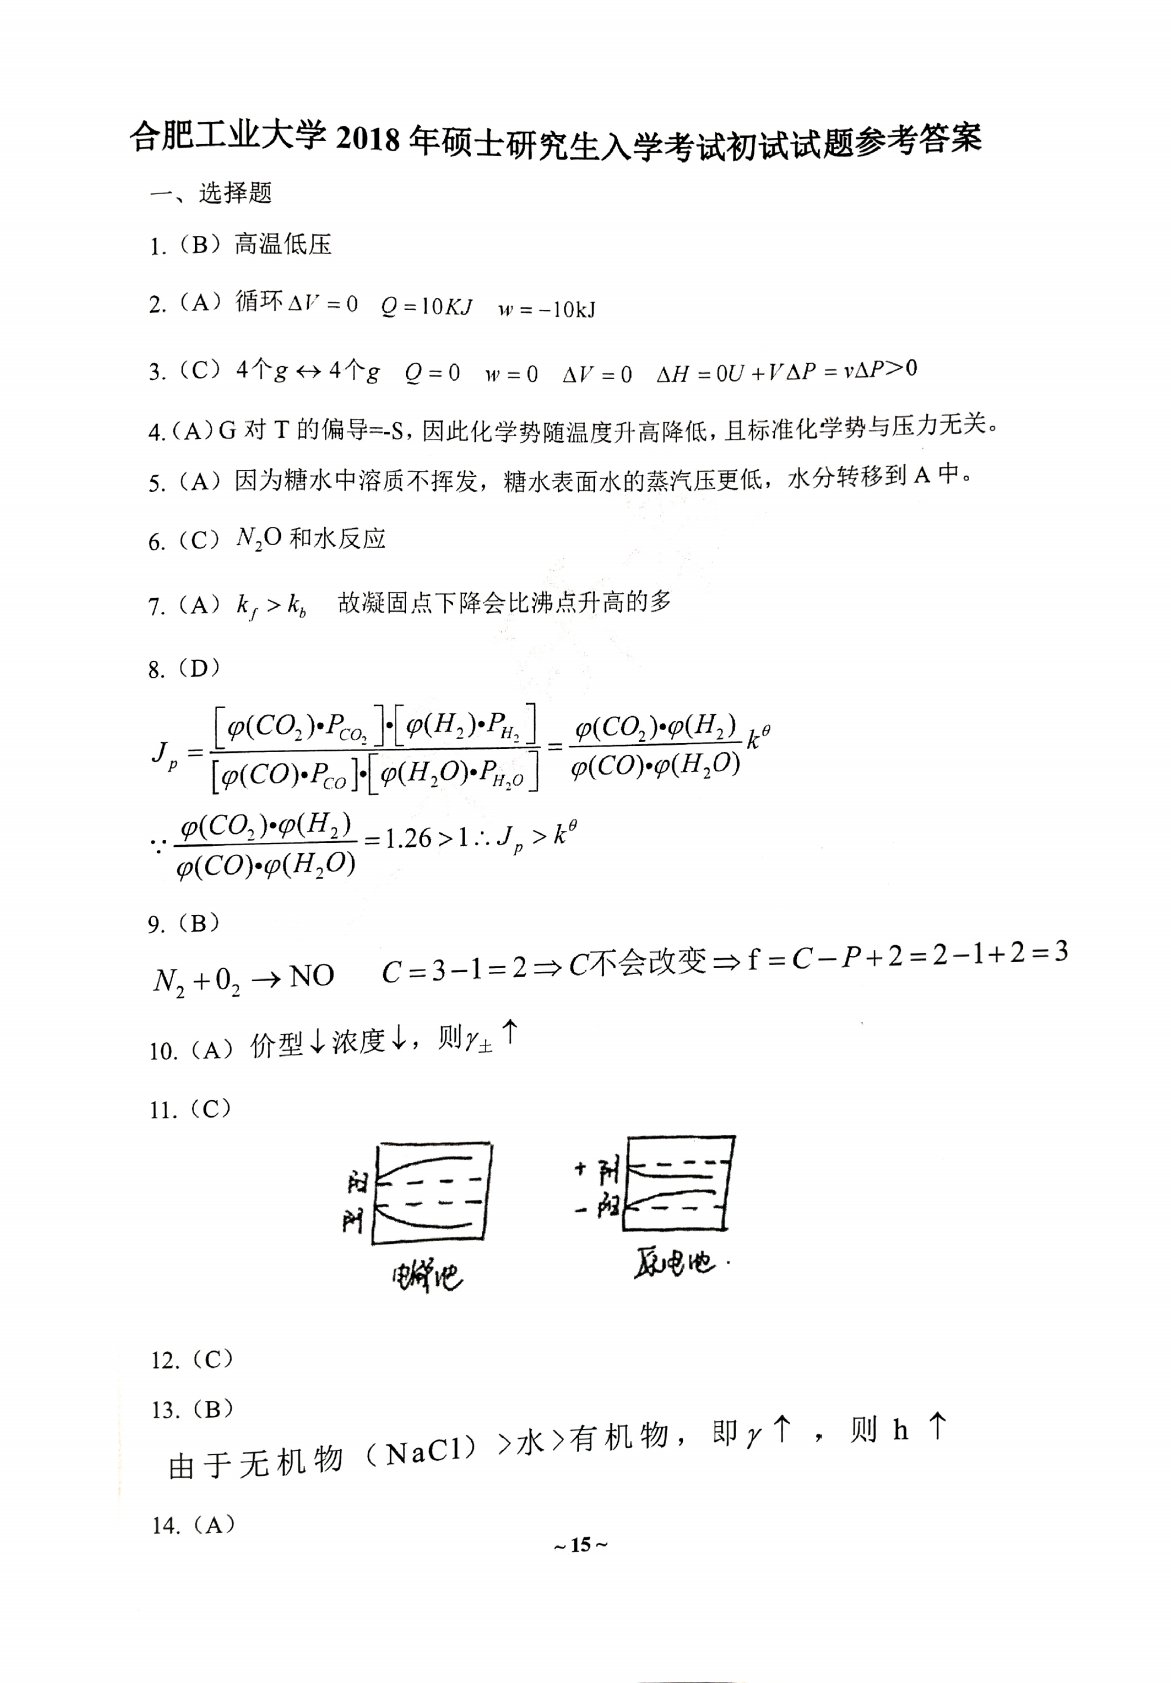 合肥工业大学 2018 年硕士研究生入学考试初试试题参考答案
一、选择题
1.（B）高温低压
2.（A）循环 ΔV = 0 Q = 10KJ w = −10kJ
3.（C）4个g ↔ 4个g Q = 0 w = 0 ΔV = 0 ΔH = 0U + VΔP = vΔP>0
4.（A）G 对 T 的偏导=-S，因此化学势随温度升高降低，且标准化学势与压力无关。
5.（A）因为糖水中溶质不挥发，糖水表面水的蒸汽压更低，水分转移到 A 中。
6.（C）N₂O 和水反应
7.（A）k_f > k_b 故凝固点下降会比沸点升高的多
8.（D）
J_p = [φ(CO₂)•P_CO₂]•[φ(H₂)•P_H₂] / [φ(CO)•P_CO]•[φ(H₂O)•P_H₂O] = φ(CO₂)•φ(H₂) / φ(CO)•φ(H₂O) k^θ
∵ φ(CO₂)•φ(H₂) / φ(CO)•φ(H₂O) = 1.26 > 1 ∴ J_p > k^θ
9.（B）
N₂ + 0₂ → NO C = 3−1 = 2 ⇒ C不会改变 ⇒ f = C − P + 2 = 2−1+2 = 3
10.（A）价型↓浓度↓，则γ± ↑
11.（C）
阳
阴
电解池
+ 阴
− 阳
原电池.
12.（C）
13.（B）
由于无机物（NaCl）>水>有机物，即γ↑，则 h ↑
14.（A）
~ 15 ~